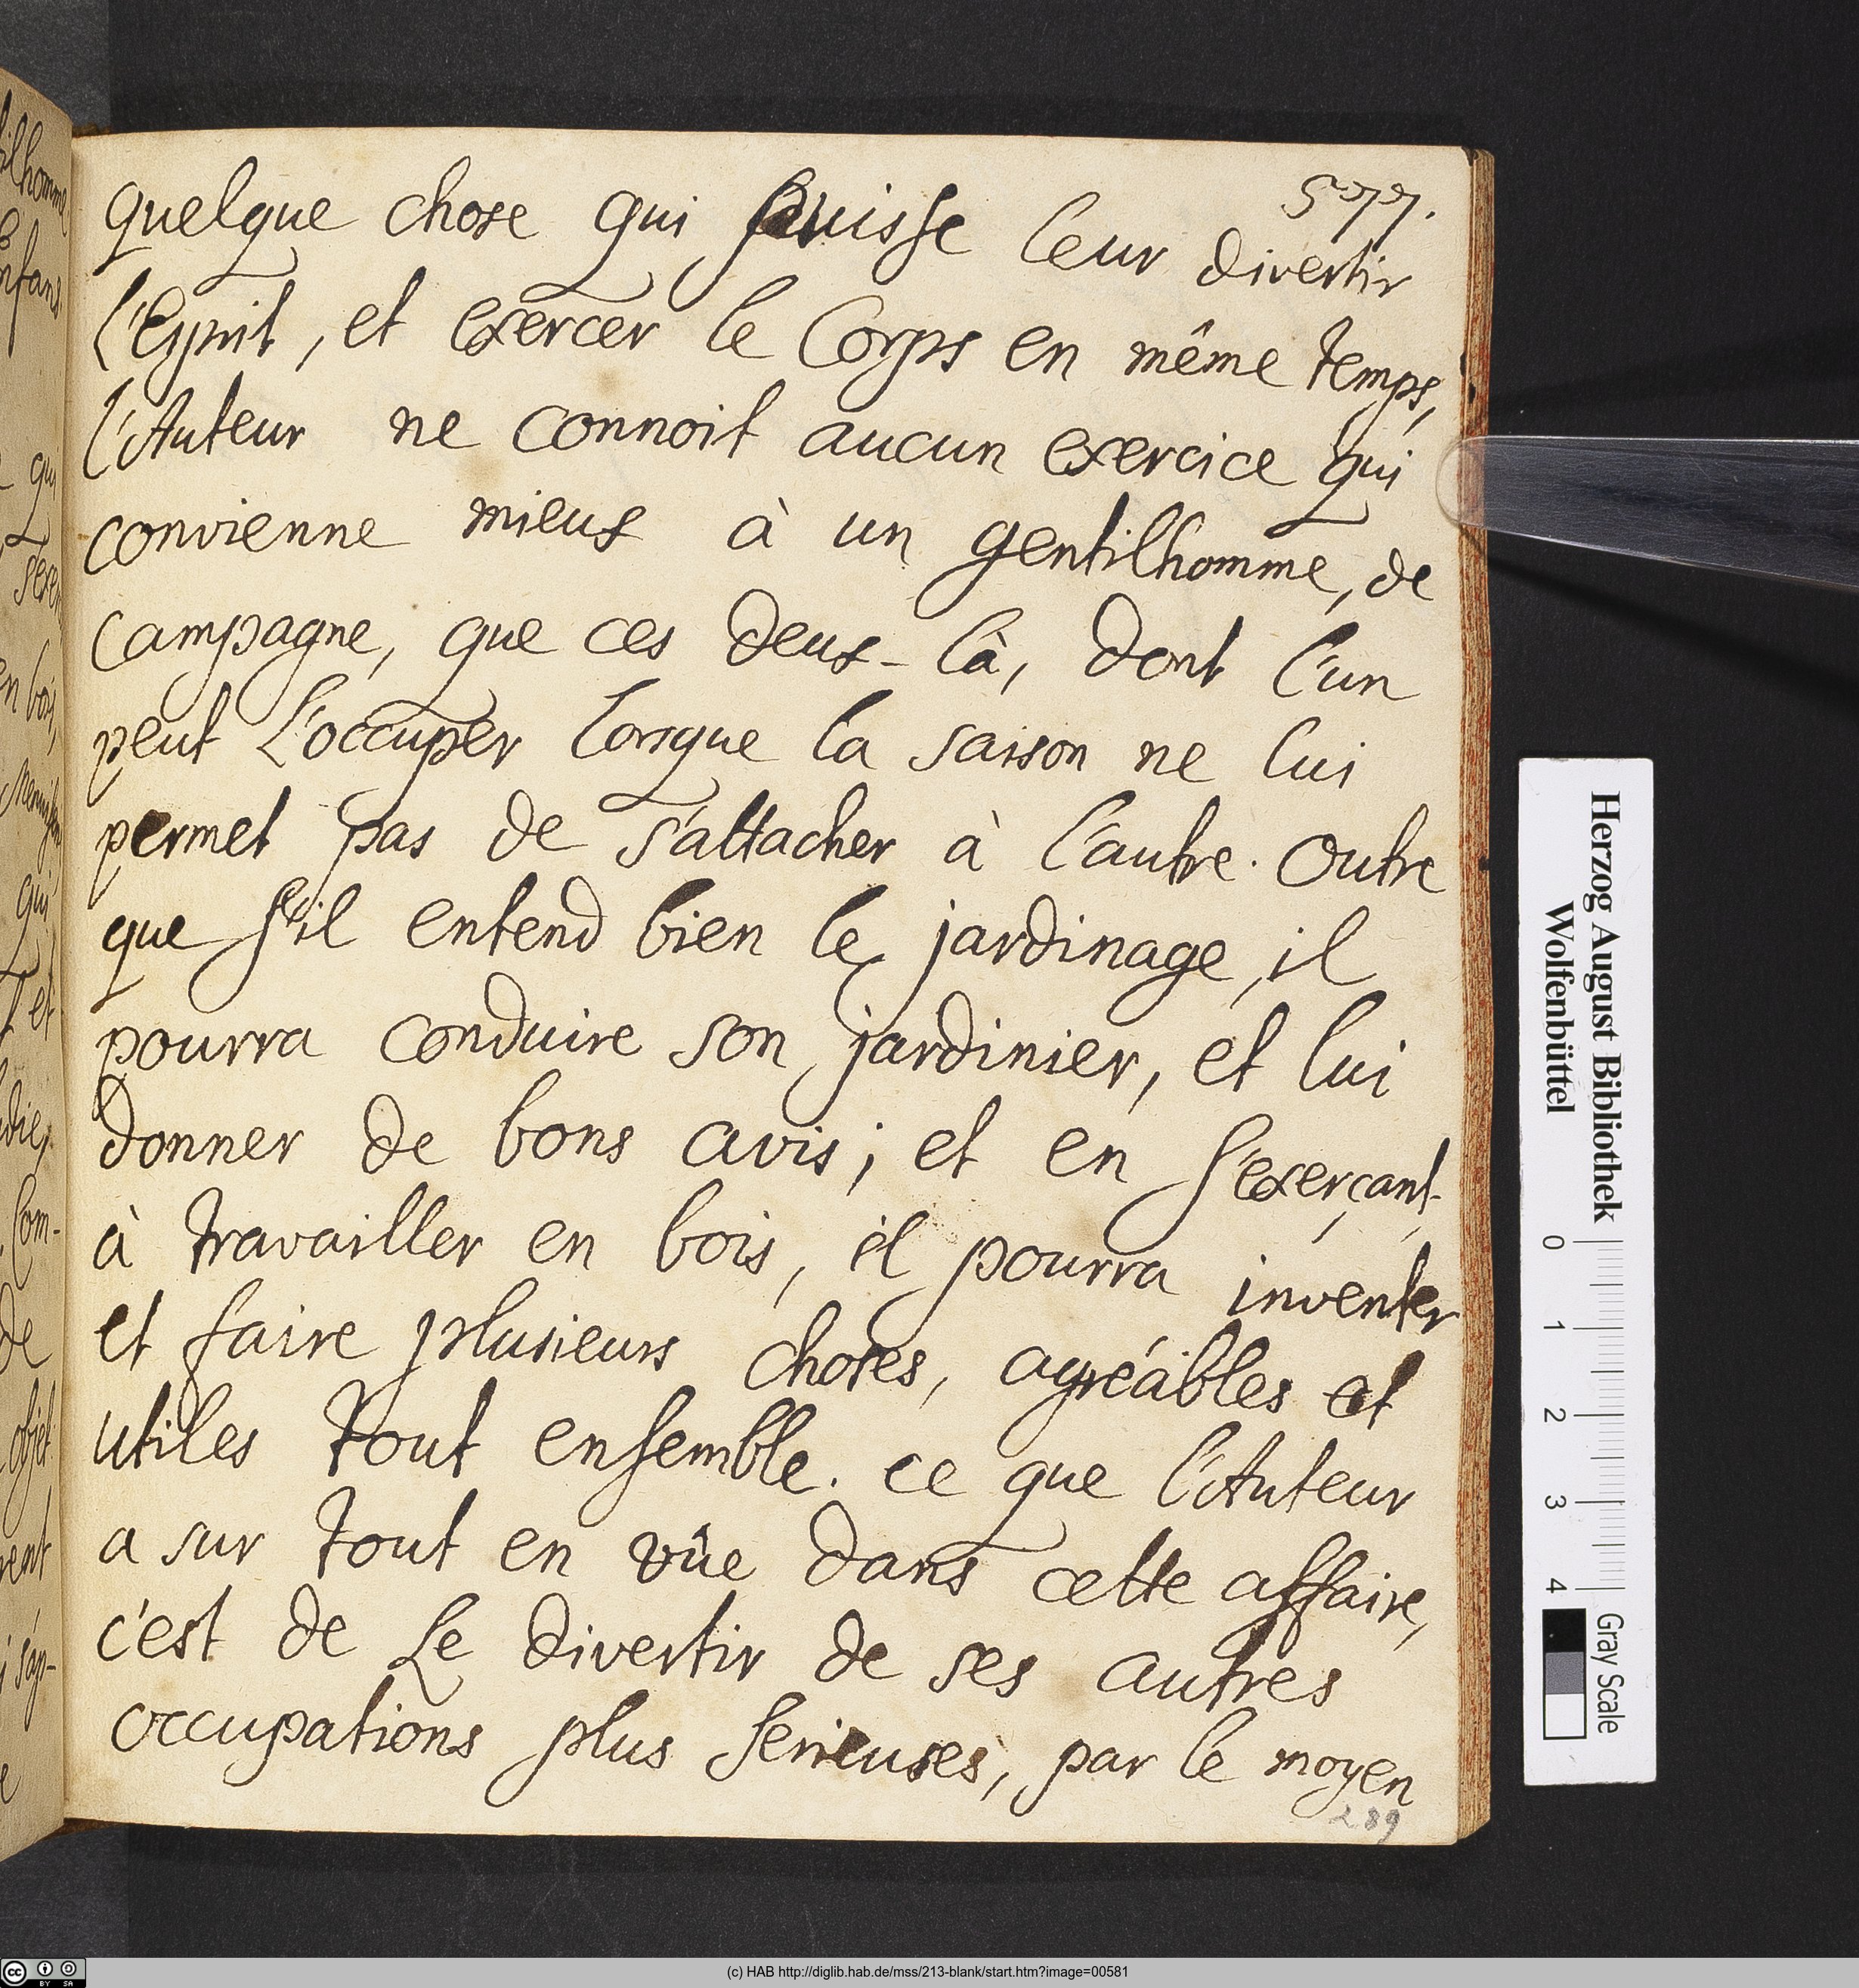 577.
quelque chose qui puisse leur divertir
l'Esprit, et exercer le Corps en même temps,
l'Auteur ne connoit aucun exercice qui
convienne mieux à un gentilhomme, de
campagne, que ces deux-là, dont l'un
peut l'occuper lorsque la saison ne lui
permet pas de s'attacher à l'autre. Outre
que s'il entend bien le jardinage, il
pourra conduire son jardinier, et lui
donner de bons avis; et en s'exerçant
à travailler en bois, il pourra inventer
et faire plusieurs choses, agréables et
utiles tout ensemble. ce que l'Auteur
a sur tout en vûe dans cette affaire,
c'est de se divertir de ses autres
occupations plus serieuses, par le moyen
289
Herzog August Bibliothek
Wolfenbüttel
0 1 2 3 4
Gray Scale
(c) HAB http://diglib.hab.de/mss/213-blank/start.htm?image=00581